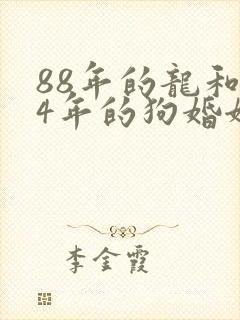 88年的龍和
4年的狗婚
李金霞